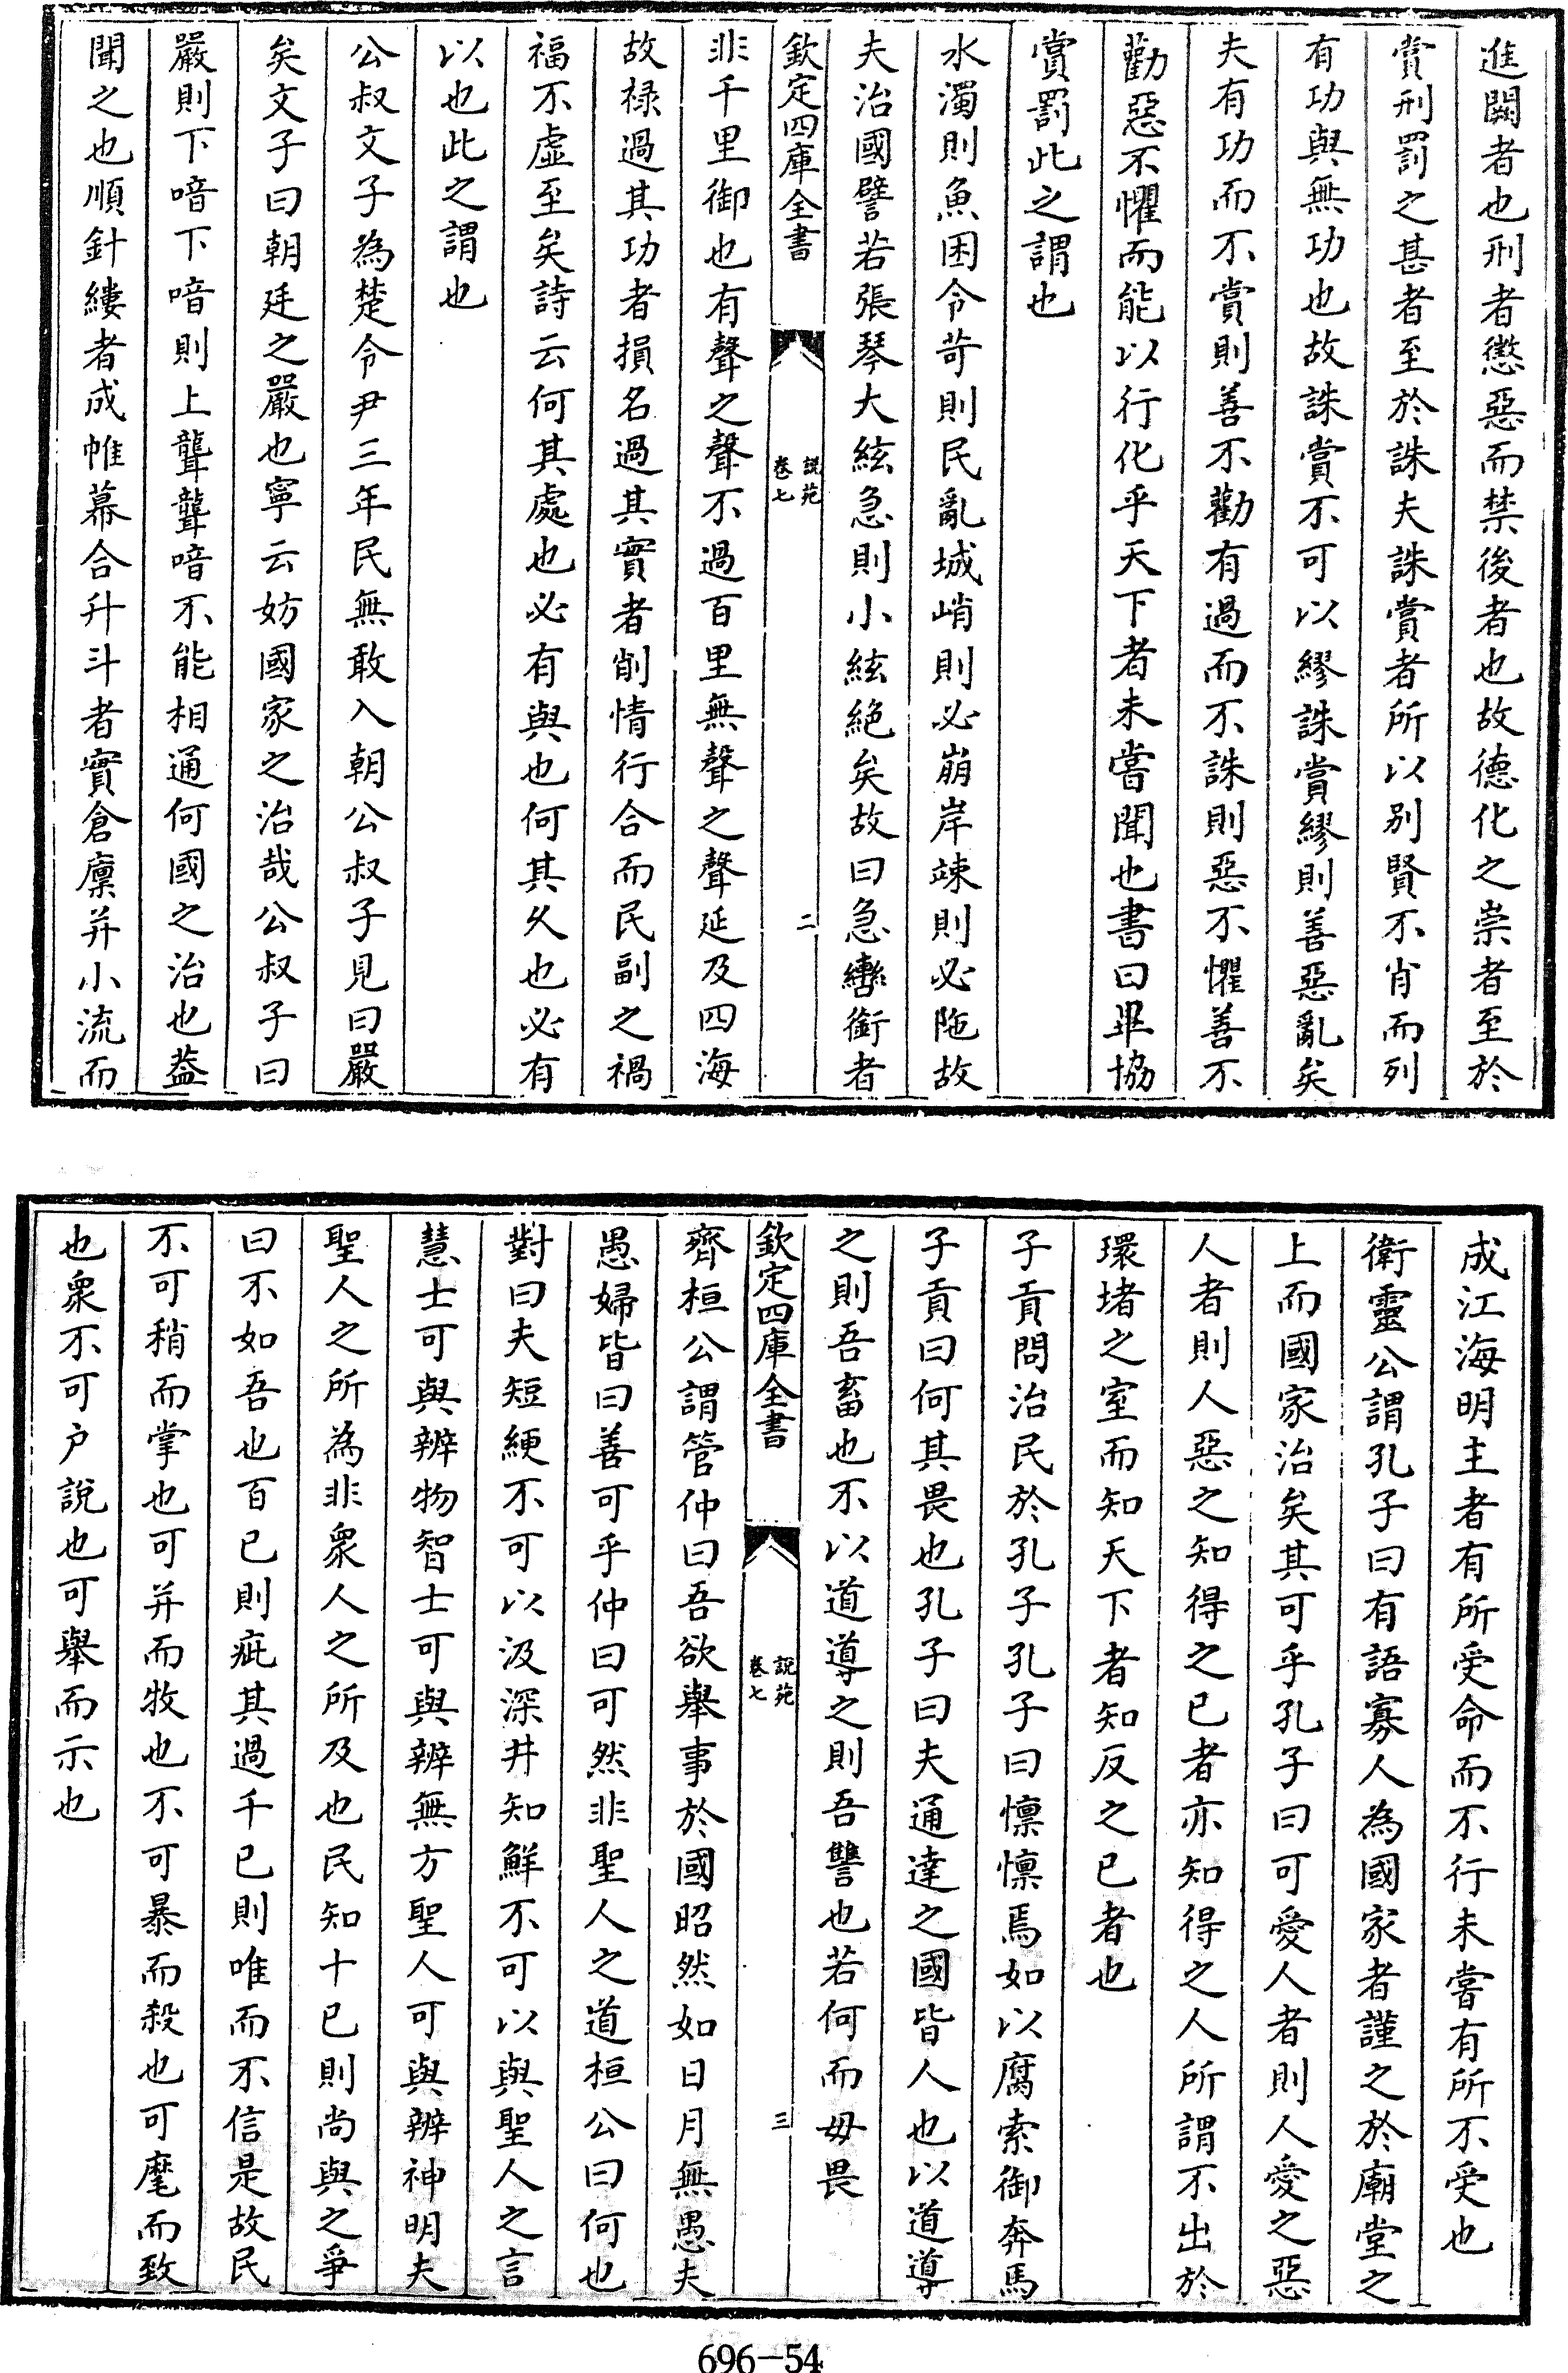 進闕者也刑者懲惡而禁後者也故德化之崇者至於
賞刑罰之甚者至於誅夫誅賞者所以别賢不肖而列
有功與無功也故誅賞不可以繆誅賞繆則善惡亂矣
夫有功而不賞則善不勸有過而不誅則惡不懼善不
勸惡不懼而能以行化乎天下者未嘗聞也書曰畢協
賞罰此之謂也
水濁則魚困令苛則民亂城峭則必崩岸竦則必陁故
夫治國譬若張琴大絃急則小絃絶矣故曰急轡銜者
欽定四庫全書
說苑
卷七
二
非千里御也有聲之聲不過百里無聲之聲延及四海
故禄過其功者損名過其實者削情行合而民副之禍
福不虛至矣詩云何其處也必有與也何其久也必有
以也此之謂也
公叔文子為楚令尹三年民無敢入朝公叔子見曰嚴
矣文子曰朝廷之嚴也寧云妨國家之治哉公叔子曰
嚴則下喑下喑則上聾聾喑不能相通何國之治也葢
聞之也順針縷者成帷幕合升斗者實倉廩并小流而
成江海明主者有所受命而不行未嘗有所不受也
衛靈公謂孔子曰有語寡人為國家者謹之於廟堂之
上而國家治矣其可乎孔子曰可愛人者則人愛之惡
人者則人惡之知得之已者亦知得之人所謂不出於
環堵之室而知天下者知反之已者也
子貢問治民於孔子孔子曰懍懍焉如以腐索御奔馬
子貢曰何其畏也孔子曰夫通達之國皆人也以道導
之則吾畜也不以道導之則吾讐也若何而毋畏
欽定四庫全書
說苑
卷七
三
齊桓公謂管仲曰吾欲舉事於國昭然如日月無愚夫
愚婦皆曰善可乎仲曰可然非聖人之道桓公曰何也
對曰夫短綆不可以汲深井知鮮不可以與聖人之言
慧士可與辨物智士可與辨無方聖人可與辨神明夫
聖人之所為非衆人之所及也民知十已則尚與之爭
曰不如吾也百已則疵其過千已則唯而不信是故民
不可稍而掌也可并而牧也不可暴而殺也可麾而致
也衆不可户說也可舉而示也
696-54